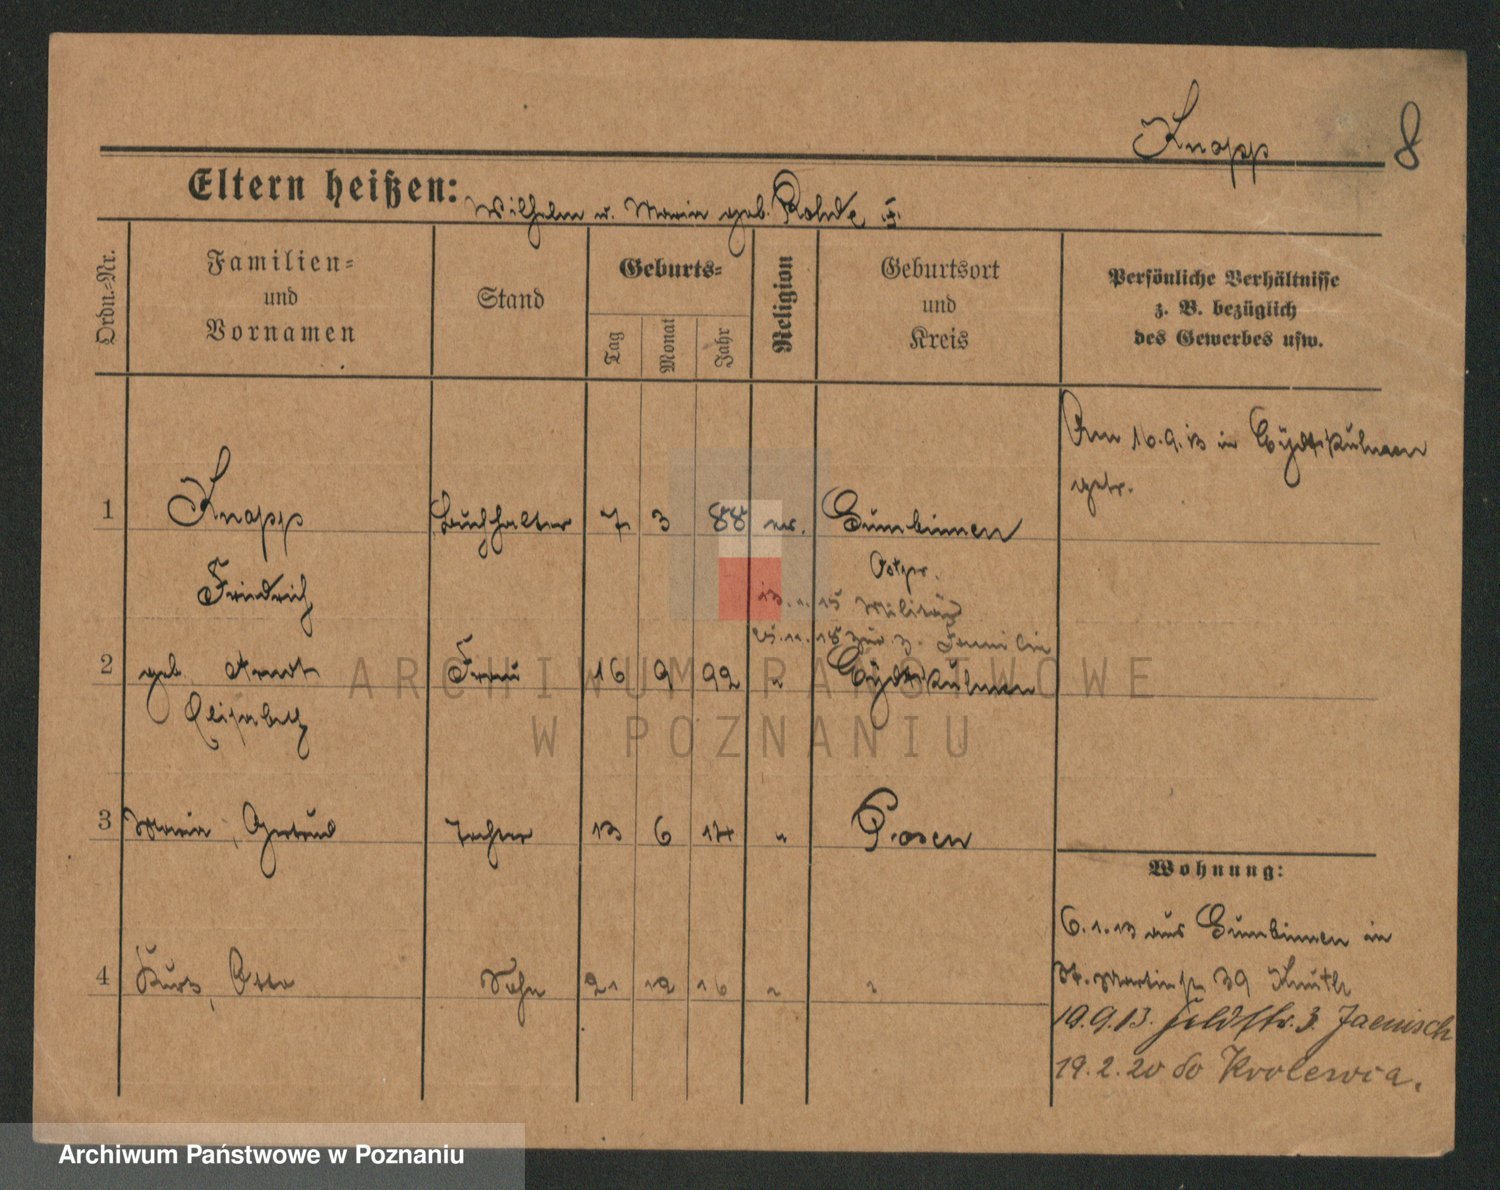 Knopp 8
Eltern heißen: Wilhelm u. Maria geb. Rohde
Ordn.-Nr.
Familien-
und
Vornamen
Stand
Geburts-
Tag
Monat
Jahr
Religion
Geburtsort
und
Kreis
Persönliche Verhältnisse
z. B. bezüglich
des Gewerbes usw.
Am 16.9.13 in Eydtkuhnen
getr.
1 Knopp Buchhalter 7 3 88 ev. Gumbinnen
Friedrich Ostpr.
13.1.15 Militär
18 zur Familie
2 geb. Arndt Frau 16 9 92 " Eydtkuhnen
Elisabeth
3 Maria, Gertrud Tochter 13 6 14 " Posen
4 Kurt, Otto Sohn 21 12 16 " "
Wohnung:
6.1.13 aus Gumbinnen in
St. Martinstr 39 Knuth
19.9.13. Feldstr. 3. Jaenisch
19.2.20 do Krolewca.
ARCHIWUM PAŃSTWOWE
W POZNANIU
Archiwum Państwowe w Poznaniu